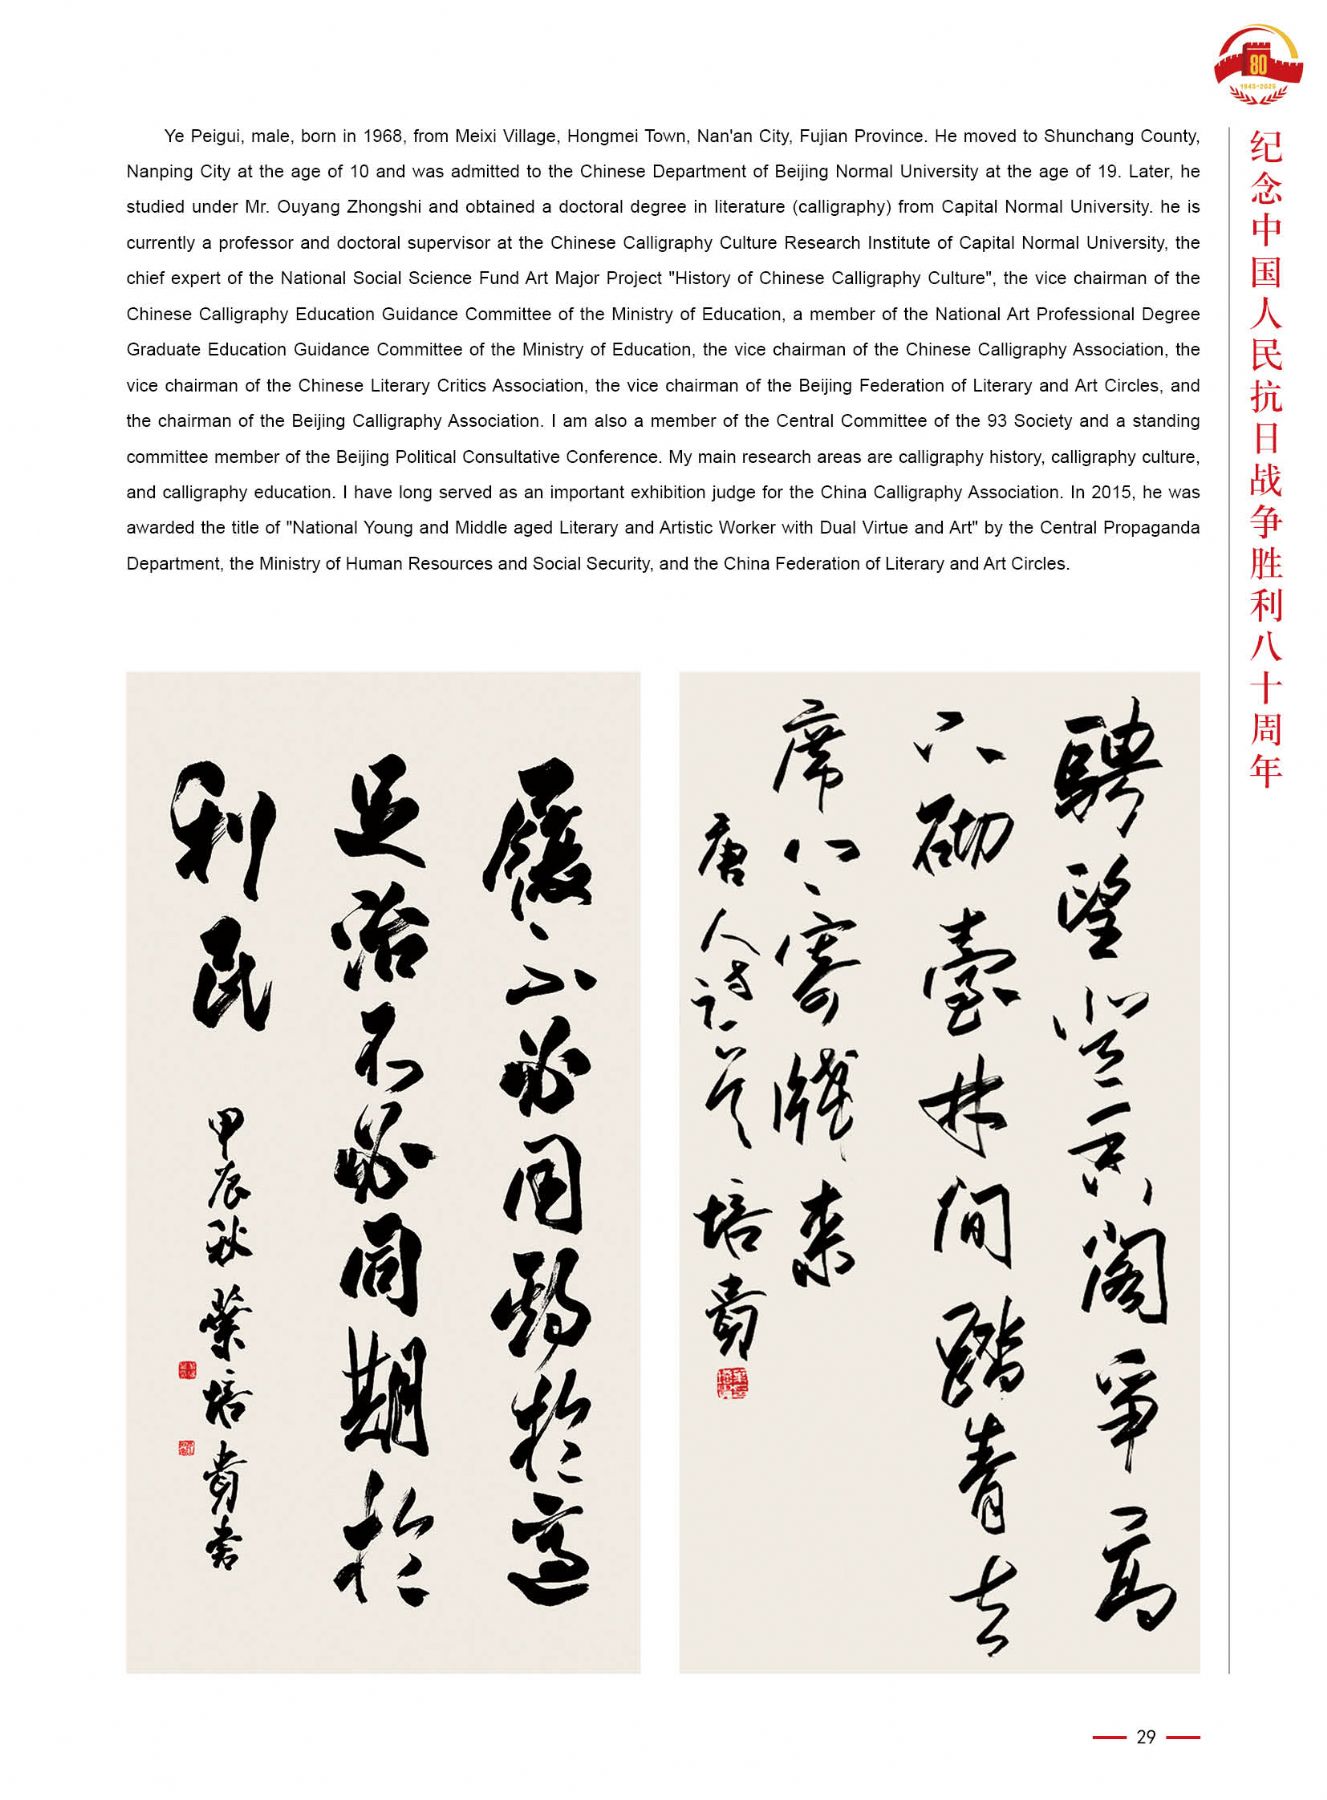 80
1945-2025
纪念中国人民抗日战争胜利八十周年
Ye Peigui, male, born in 1968, from Meixi Village, Hongmei Town, Nan'an City, Fujian Province. He moved to Shunchang County,
Nanping City at the age of 10 and was admitted to the Chinese Department of Beijing Normal University at the age of 19. Later, he
studied under Mr. Ouyang Zhongshi and obtained a doctoral degree in literature (calligraphy) from Capital Normal University. he is
currently a professor and doctoral supervisor at the Chinese Calligraphy Culture Research Institute of Capital Normal University, the
chief expert of the National Social Science Fund Art Major Project "History of Chinese Calligraphy Culture", the vice chairman of the
Chinese Calligraphy Education Guidance Committee of the Ministry of Education, a member of the National Art Professional Degree
Graduate Education Guidance Committee of the Ministry of Education, the vice chairman of the Chinese Calligraphy Association, the
vice chairman of the Chinese Literary Critics Association, the vice chairman of the Beijing Federation of Literary and Art Circles, and
the chairman of the Beijing Calligraphy Association. I am also a member of the Central Committee of the 93 Society and a standing
committee member of the Beijing Political Consultative Conference. My main research areas are calligraphy history, calligraphy culture,
and calligraphy education. I have long served as an important exhibition judge for the China Calligraphy Association. In 2015, he was
awarded the title of "National Young and Middle aged Literary and Artistic Worker with Dual Virtue and Art" by the Central Propaganda
Department, the Ministry of Human Resources and Social Security, and the China Federation of Literary and Art Circles.
騁望登香閣爭高
下砌臺林間踏青去
席上寄牋來
唐人詩一首
培貴
履不必同期於適
足治不必同期於
利民
甲辰秋葉培貴書
29